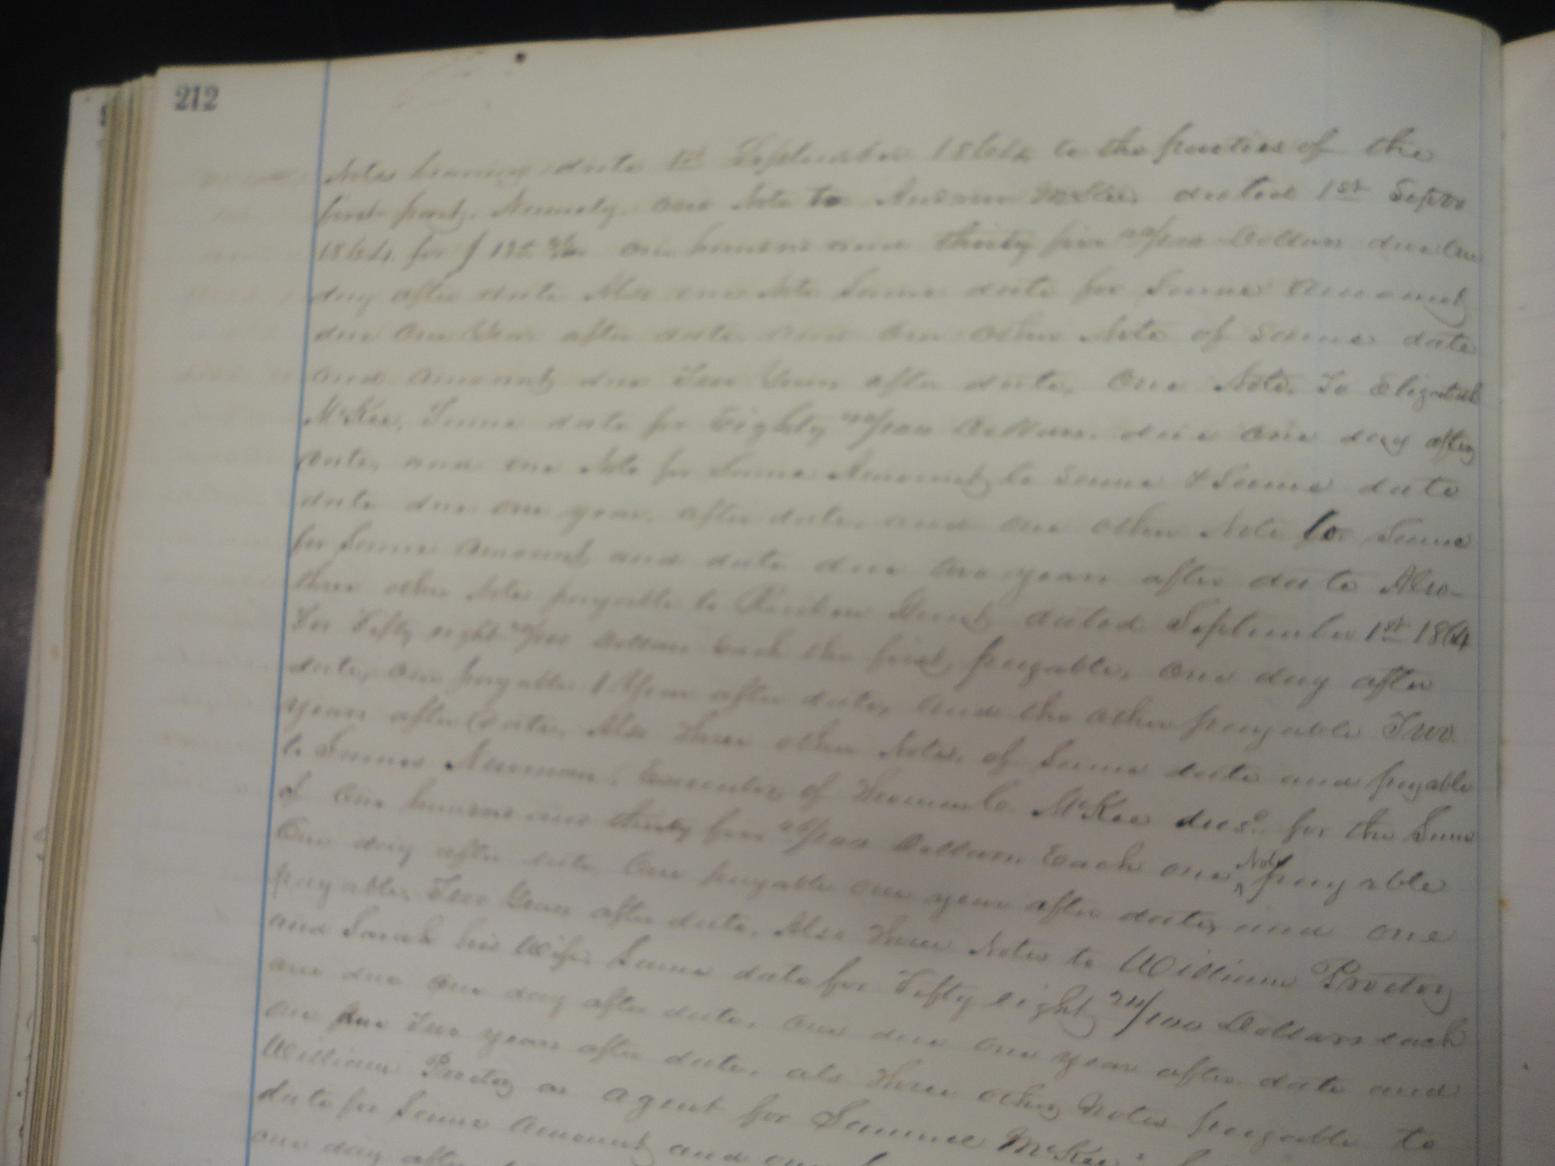 212
Notes bearing date 1st September 1864 to the parties of the
first part, Namely, one Note to Andrew McKee, dated 1st Septr
1864 for $ 135 one hundred and thirty five /100 Dollars due one
day after date Also one Note Same date for Same Amount
due one Year after date, and one other Note of Same date
and Amount due Two Years after date, One Note, To Elizabeth
McKee, Same date for Eighty /100 Dollars, due one day after
date, and one Note for Same Amount to Same & Same date
date due one year, after date, and one other Note to Same
for Same Amount and date due two years after date Also
three other Notes payable to Reuben dated September 1st 1864
For Fifty eight /100 Dollars Each the first payable, one day after
date, one payable 1 Year after date, and the other payable Two
years after date, Also three other Notes, of Same date and payable
to James Newman, Executor of McKee decsd for the Sum
of One hundred and thirty five /100 Dollars Each one Note payable
One day after date, One payable one year after date, and one
payable, Two Years after date, Also three Notes to William Proctor
and Sarah his Wife, Same date for Fifty eight 24/100 Dollars each
one due one day after date, one due one year after date and
one due Two years after date, also three other Notes payable to
William Proctor as agent for Samuel McKee,
date for Same Amount and one
one day after